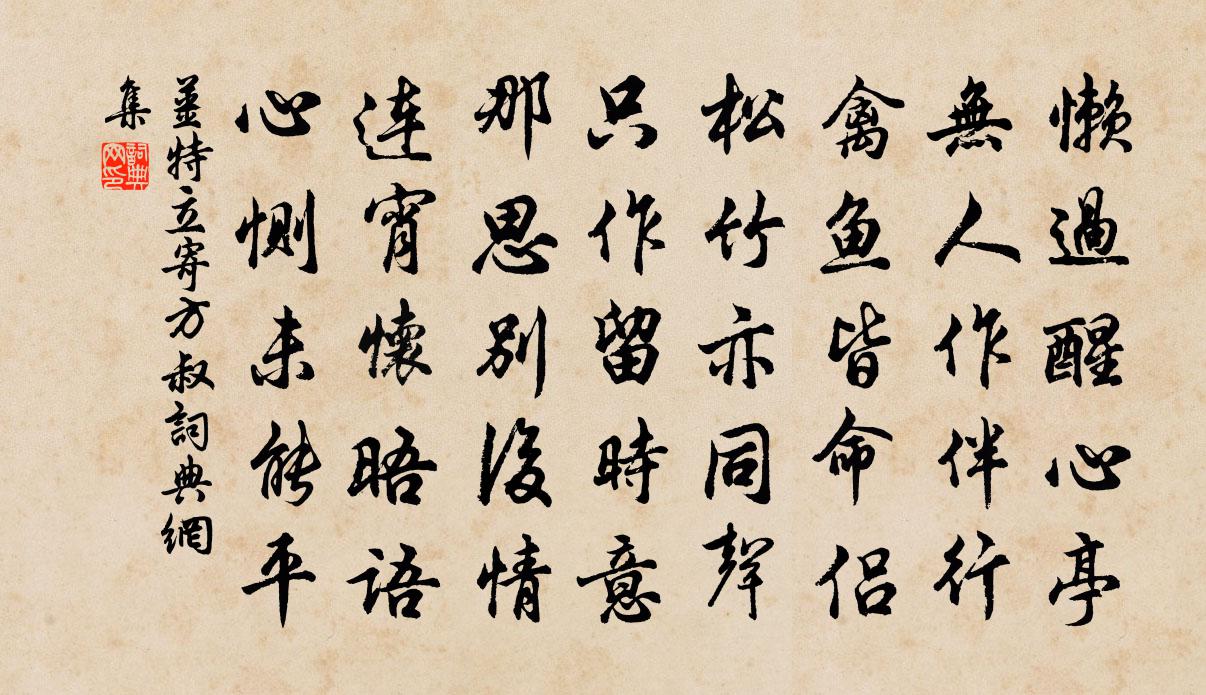 懒過醒心亭
無人作伴行
禽鱼皆命侣
松竹亦同聲
只作留時意
那思别後情
連宵懷晤語
心惻未能平
姜特立寄方叔詞典網
集
詞典网印